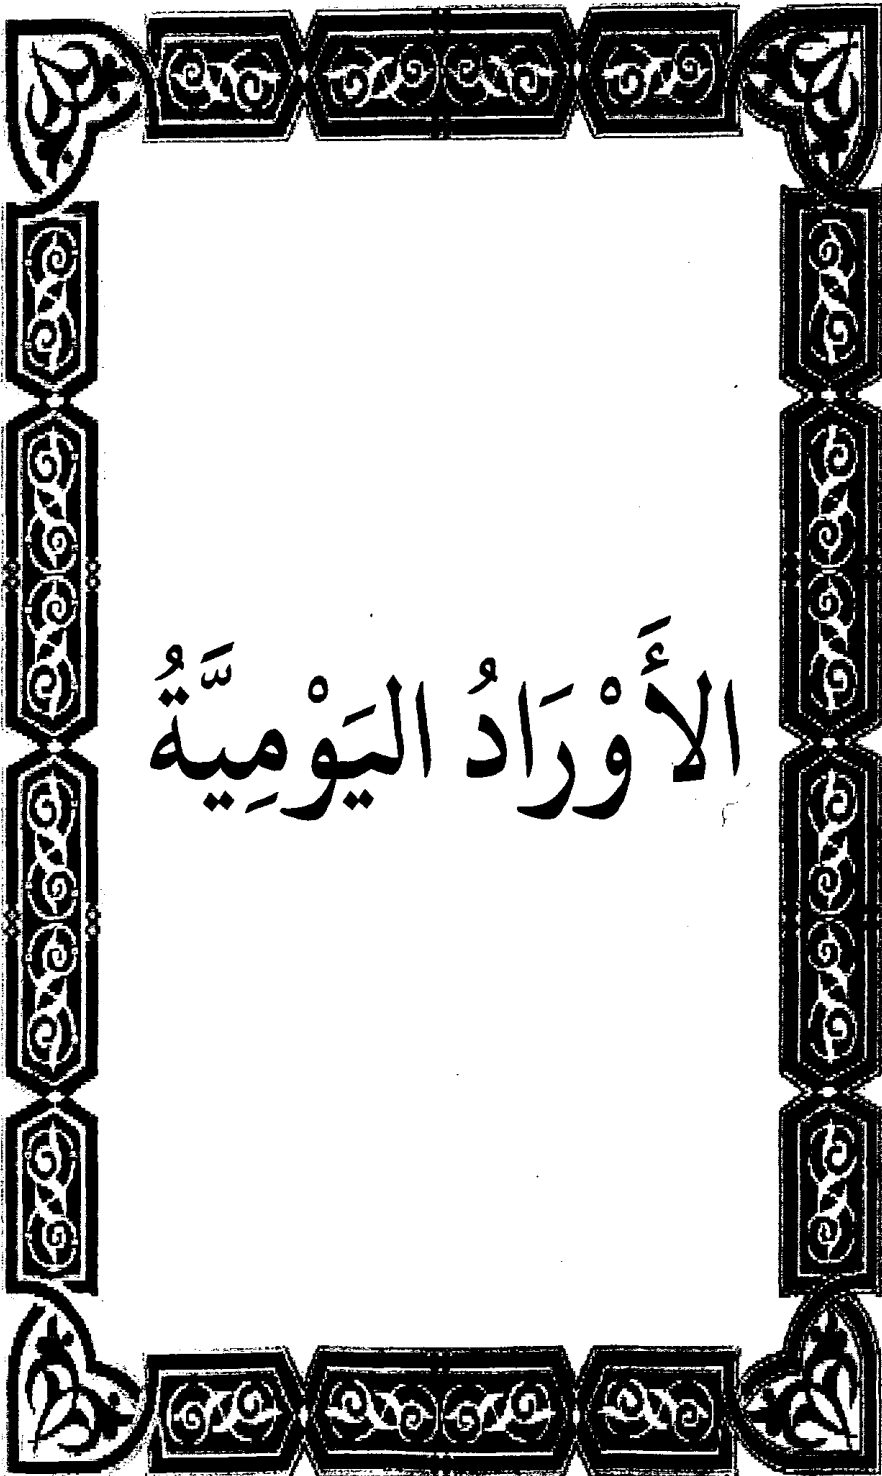 الأَوْرَادُ اليَوْمِيَّةُ